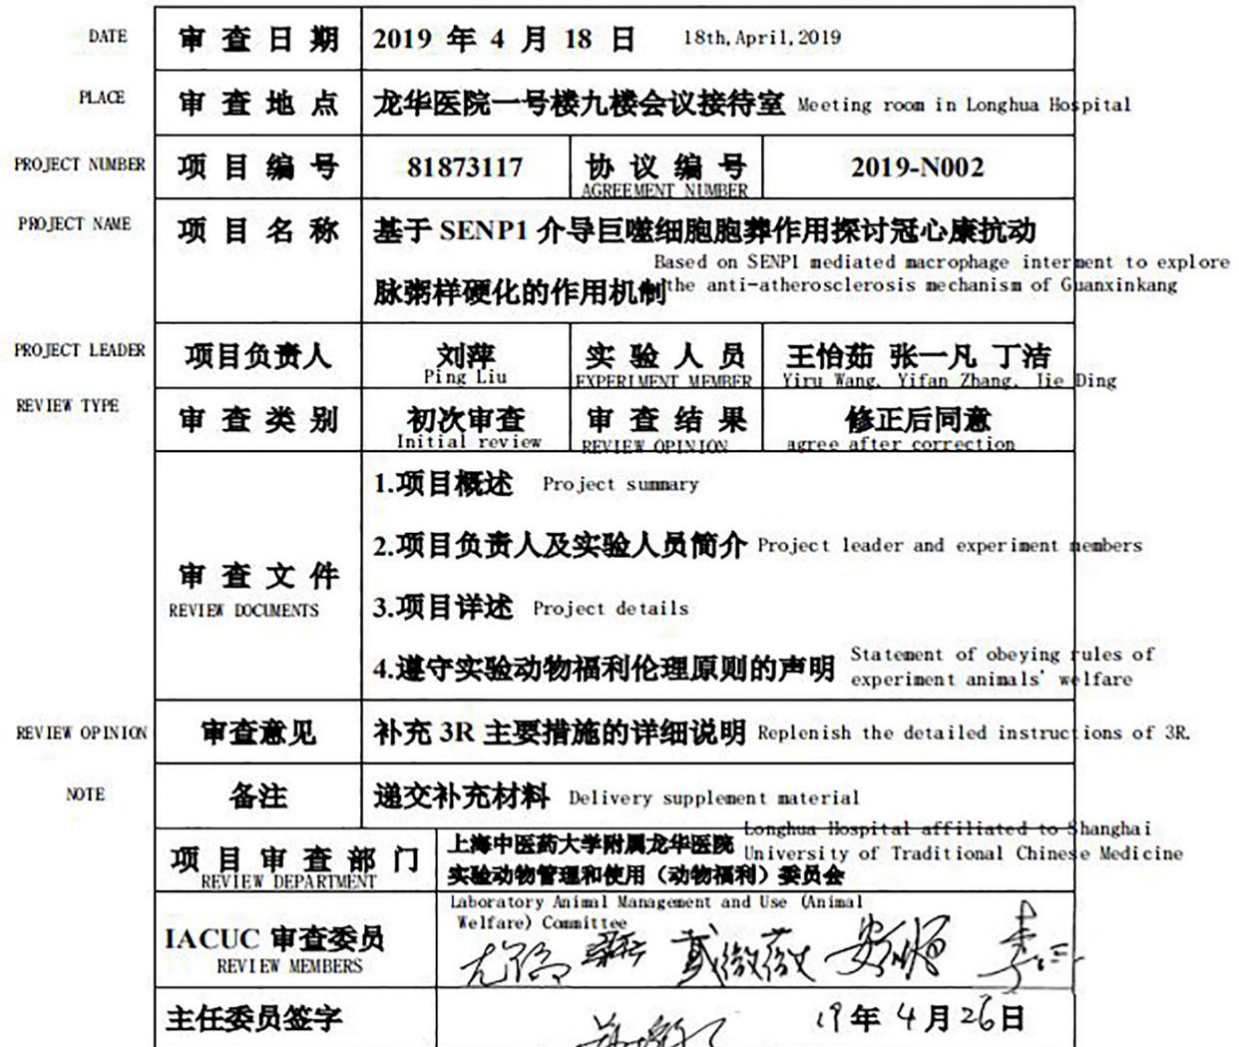 DATE 审查日期 2019 年 4 月 18 日 18th,April,2019
PLACE 审查地点 龙华医院一号楼九楼会议接待室 Meeting room in Longhua Hospital
PROJECT NUMBER 项目编号 81873117 协议编号 2019-N002
AGREEMENT NUMBER
PROJECT NAME 项目名称 基于 SENP1 介导巨噬细胞胞葬作用探讨冠心康抗动
Based on SENP1 mediated macrophage interment to explore
脉粥样硬化的作用机制 the anti-atherosclerosis mechanism of Guanxinkang
PROJECT LEADER 项目负责人 刘萍 实验人员 王怡茹 张一凡 丁洁
Ping Liu EXPERIMENT MEMBER Yiru Wang, Yifan Zhang, Jie Ding
REVIEW TYPE 审查类别 初次审查 审查结果 修正后同意
Initial review REVIEW OPINION agree after correction
1.项目概述 Project summary
2.项目负责人及实验人员简介 Project leader and experiment members
审查文件
REVIEW DOCUMENTS
3.项目详述 Project details
4.遵守实验动物福利伦理原则的声明 Statement of obeying rules of
experiment animals' welfare
REVIEW OPINION 审查意见 补充 3R 主要措施的详细说明 Replenish the detailed instructions of 3R.
NOTE 备注 递交补充材料 Delivery supplement material
项目审查部门 上海中医药大学附属龙华医院 Longhua Hospital affiliated to Shanghai
REVIEW DEPARTMENT University of Traditional Chinese Medicine
实验动物管理和使用（动物福利）委员会
Laboratory Animal Management and Use (Animal
Welfare) Committee
IACUC 审查委员
REVIEW MEMBERS
主任委员签字 19年 4月26日